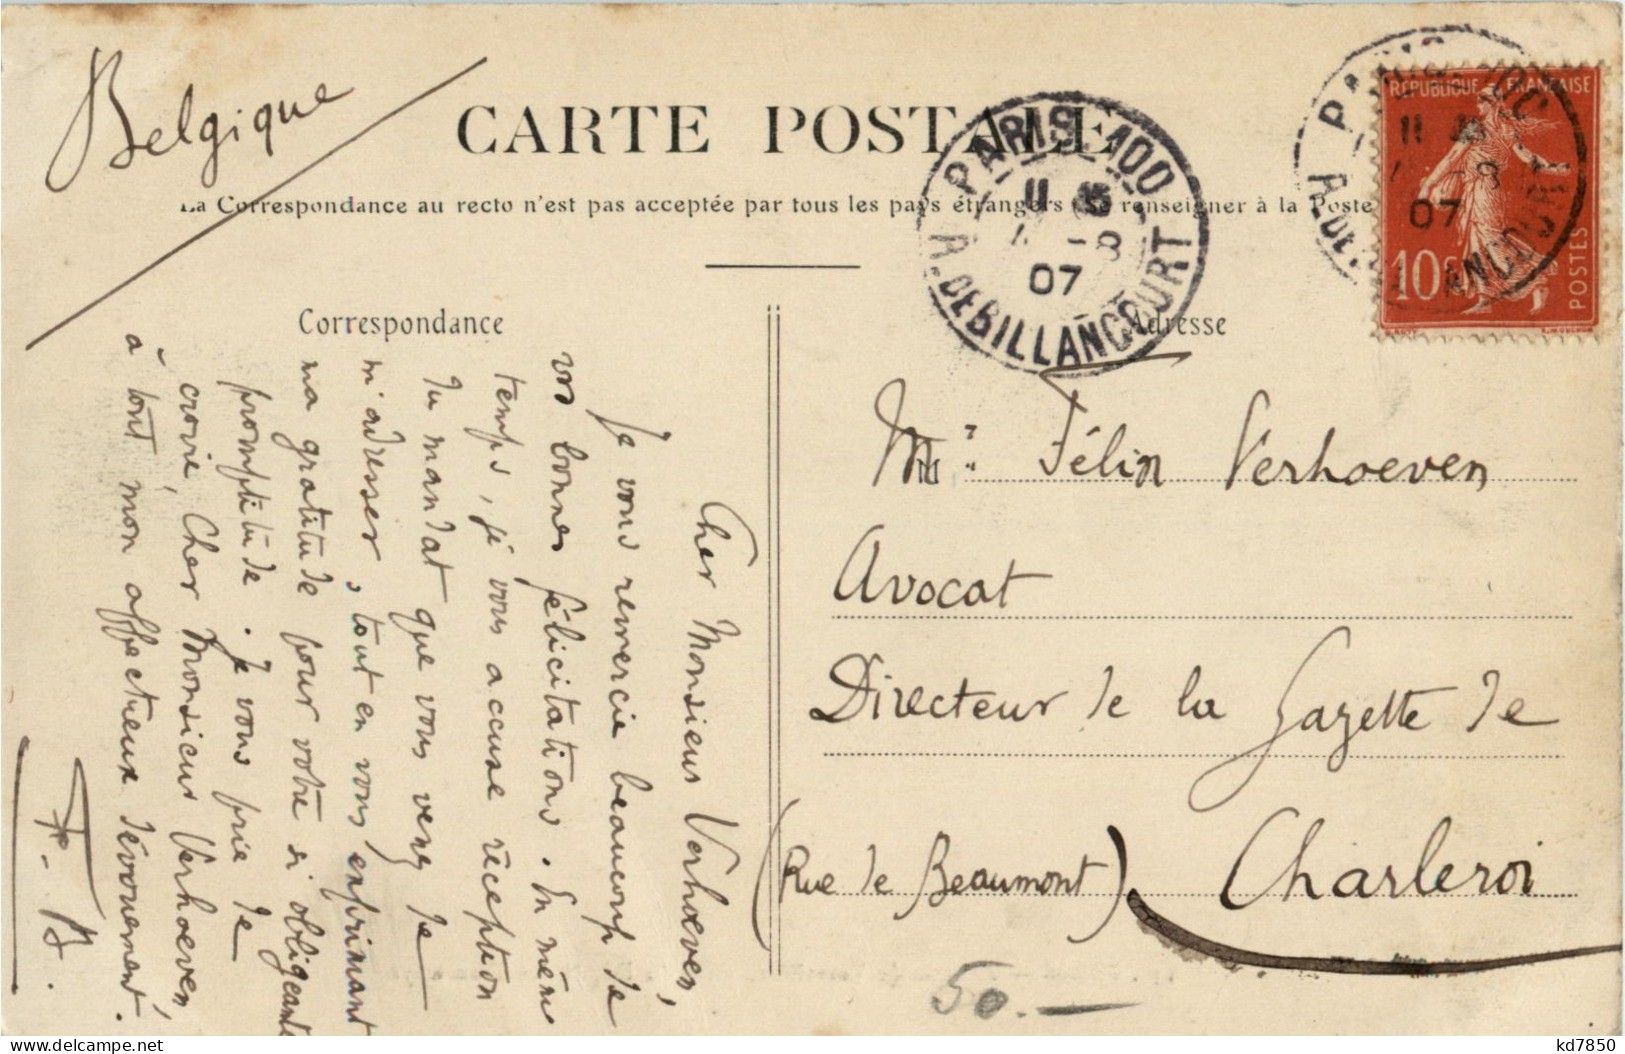 Belgique
CARTE POSTALE
La Correspondance au recto n'est pas acceptée par tous les pays étrangers (Se renseigner à la Poste
PARIS 100
11
4 -8
07
R. DE BILLANCOURT
RÉPUBLIQUE FRANÇAISE
10 c
POSTES
PARIS
11
-8
07
R. DE
ANCOURT
Correspondance
Adresse
Cher Monsieur Verhoeven,
Je vous remercie beaucoup de
vos bonnes félicitations. En même
temps, je vous accuse réception
du mandat que vous venez de
m'adresser, tout en vous exprimant
ma gratitude pour votre si obligeante
promptitude. Je vous prie de
croire, Cher Monsieur Verhoeven,
à tout mon affectueux dévouement.
F. B.
Félin Verhoeven
Avocat
Directeur de la Gazette de
(Rue de Beaumont) Charleroi
50.—
kd7850